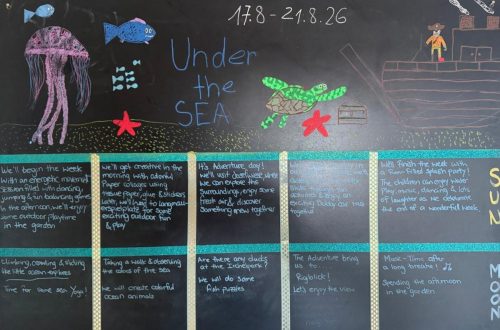 17.8-21.8.26
Under
the
SEA
We'll begin the week
with an energetic morning
session filled with dancing,
jumping & fun balancing games
In the afternoon we'll enjoy
some outdoor playtime
in the garden
We'll get creative in the
morning with colorful
paper collages using
tissue paper, glue & stickers
Later, we'll head to
for some
exciting outdoor fun
& play
It's Adventure day!
We'll visit
we can explore the
surroundings, enjoy some
fresh air & discover
something new together
exciting
together
We'll finish the week with
a fun-filled splash party!
The children can enjoy water
play, music, dancing, & lots
of laughter as we celebrate
the end of a wonderful week.
SUN
Climbing, crawling &
like little ocean
Time for some sea Yoga!
Taking a walk & observing
the colors of the sea
We will create colorful
ocean animals
Are there any ducks
at the
We will do some
fish puzzles
The Adventure bring
us to...
Let's enjoy the view
Music-Time after
a long breake!
Spending the afternoon
in the garden
MOON